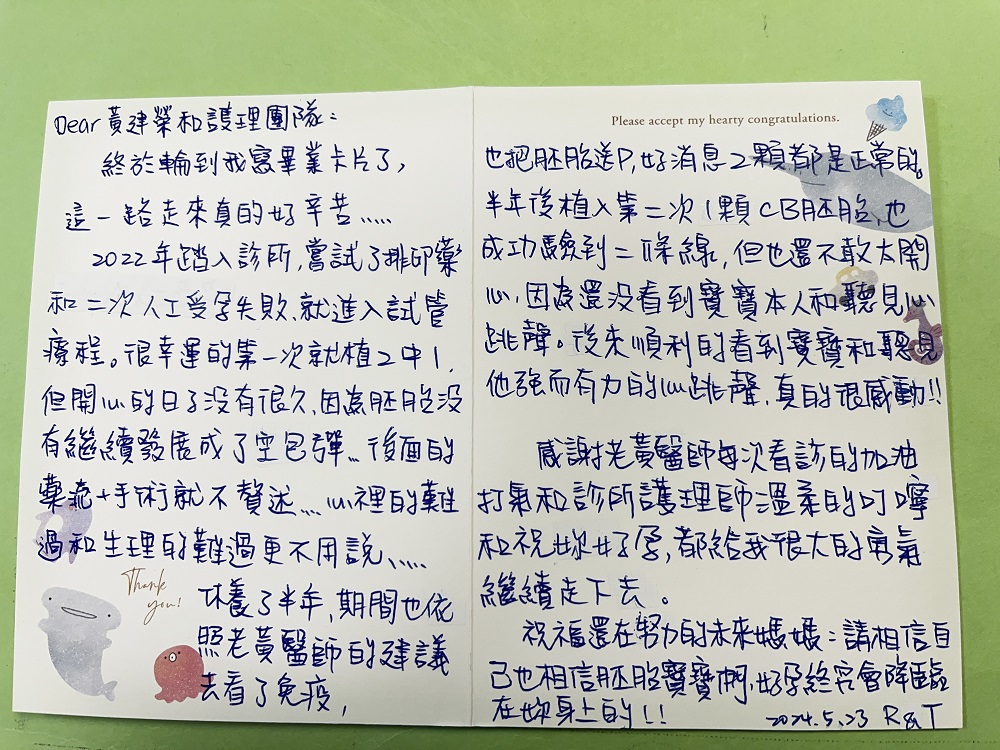 Dear 黃建榮和護理團隊：
終於輪到我寫畢業卡片了，
這一路走來真的好辛苦.....
2022年踏入診所，嘗試了排卵藥
和二次人工受孕失敗、就進入試管
療程。很幸運的第一次就植2中1，
但開心的日子沒有很久，因為胚胎沒
有繼續發展成了空包彈... 後面的
藥流+手術就不贅述....心裡的難
過和生理的難過更不用說.....
休養了半年，期間也依
照老黃醫師的建議
去看了免疫，
Thank
you!
Please accept my hearty congratulations.
也把胚胎送P，好消息2顆都是正常的。
半年後植入第二次1顆CB胚胎、也
成功驗到二條線，但也還不敢太開
心，因為還沒看到寶寶本人和聽見心
跳聲。後來順利的看到寶寶和聽見
他強而有力的心跳聲，真的很感動!!
感謝老黃醫師每次看診的加油
打氣和診所護理師溫柔的叮嚀
和祝妳好孕，都給我很大的勇氣
繼續走下去。
祝福還在努力的未來媽媽：請相信自
己也相信胚胎寶寶們，好孕終究會降臨
在妳身上的!!
2024.5.23 R&T